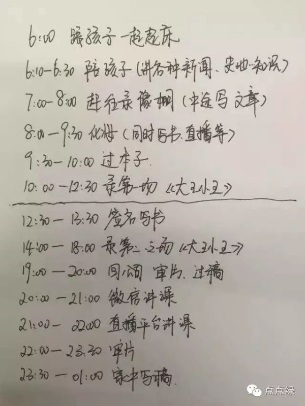 6:00 跟孩子一起起床
6:10-6:30 陪孩子(讲各种新闻、史地知识)
7:00-8:00 赶往录像棚(中途写文章)
8:00-9:30 化妆(同时写书、直播等)
9:30-10:00 过本子
10:00-12:30 录第一场《大王小王》
12:30-13:30 签名写书
14:00-18:00 录第二场《大王小王》
19:00-20:00 回公司 审片、过稿
20:00-21:00 微信讲课
21:00-02:00 直播平台讲课
22:00-23:30 审片
23:30-01:00 家中写稿
点点妈